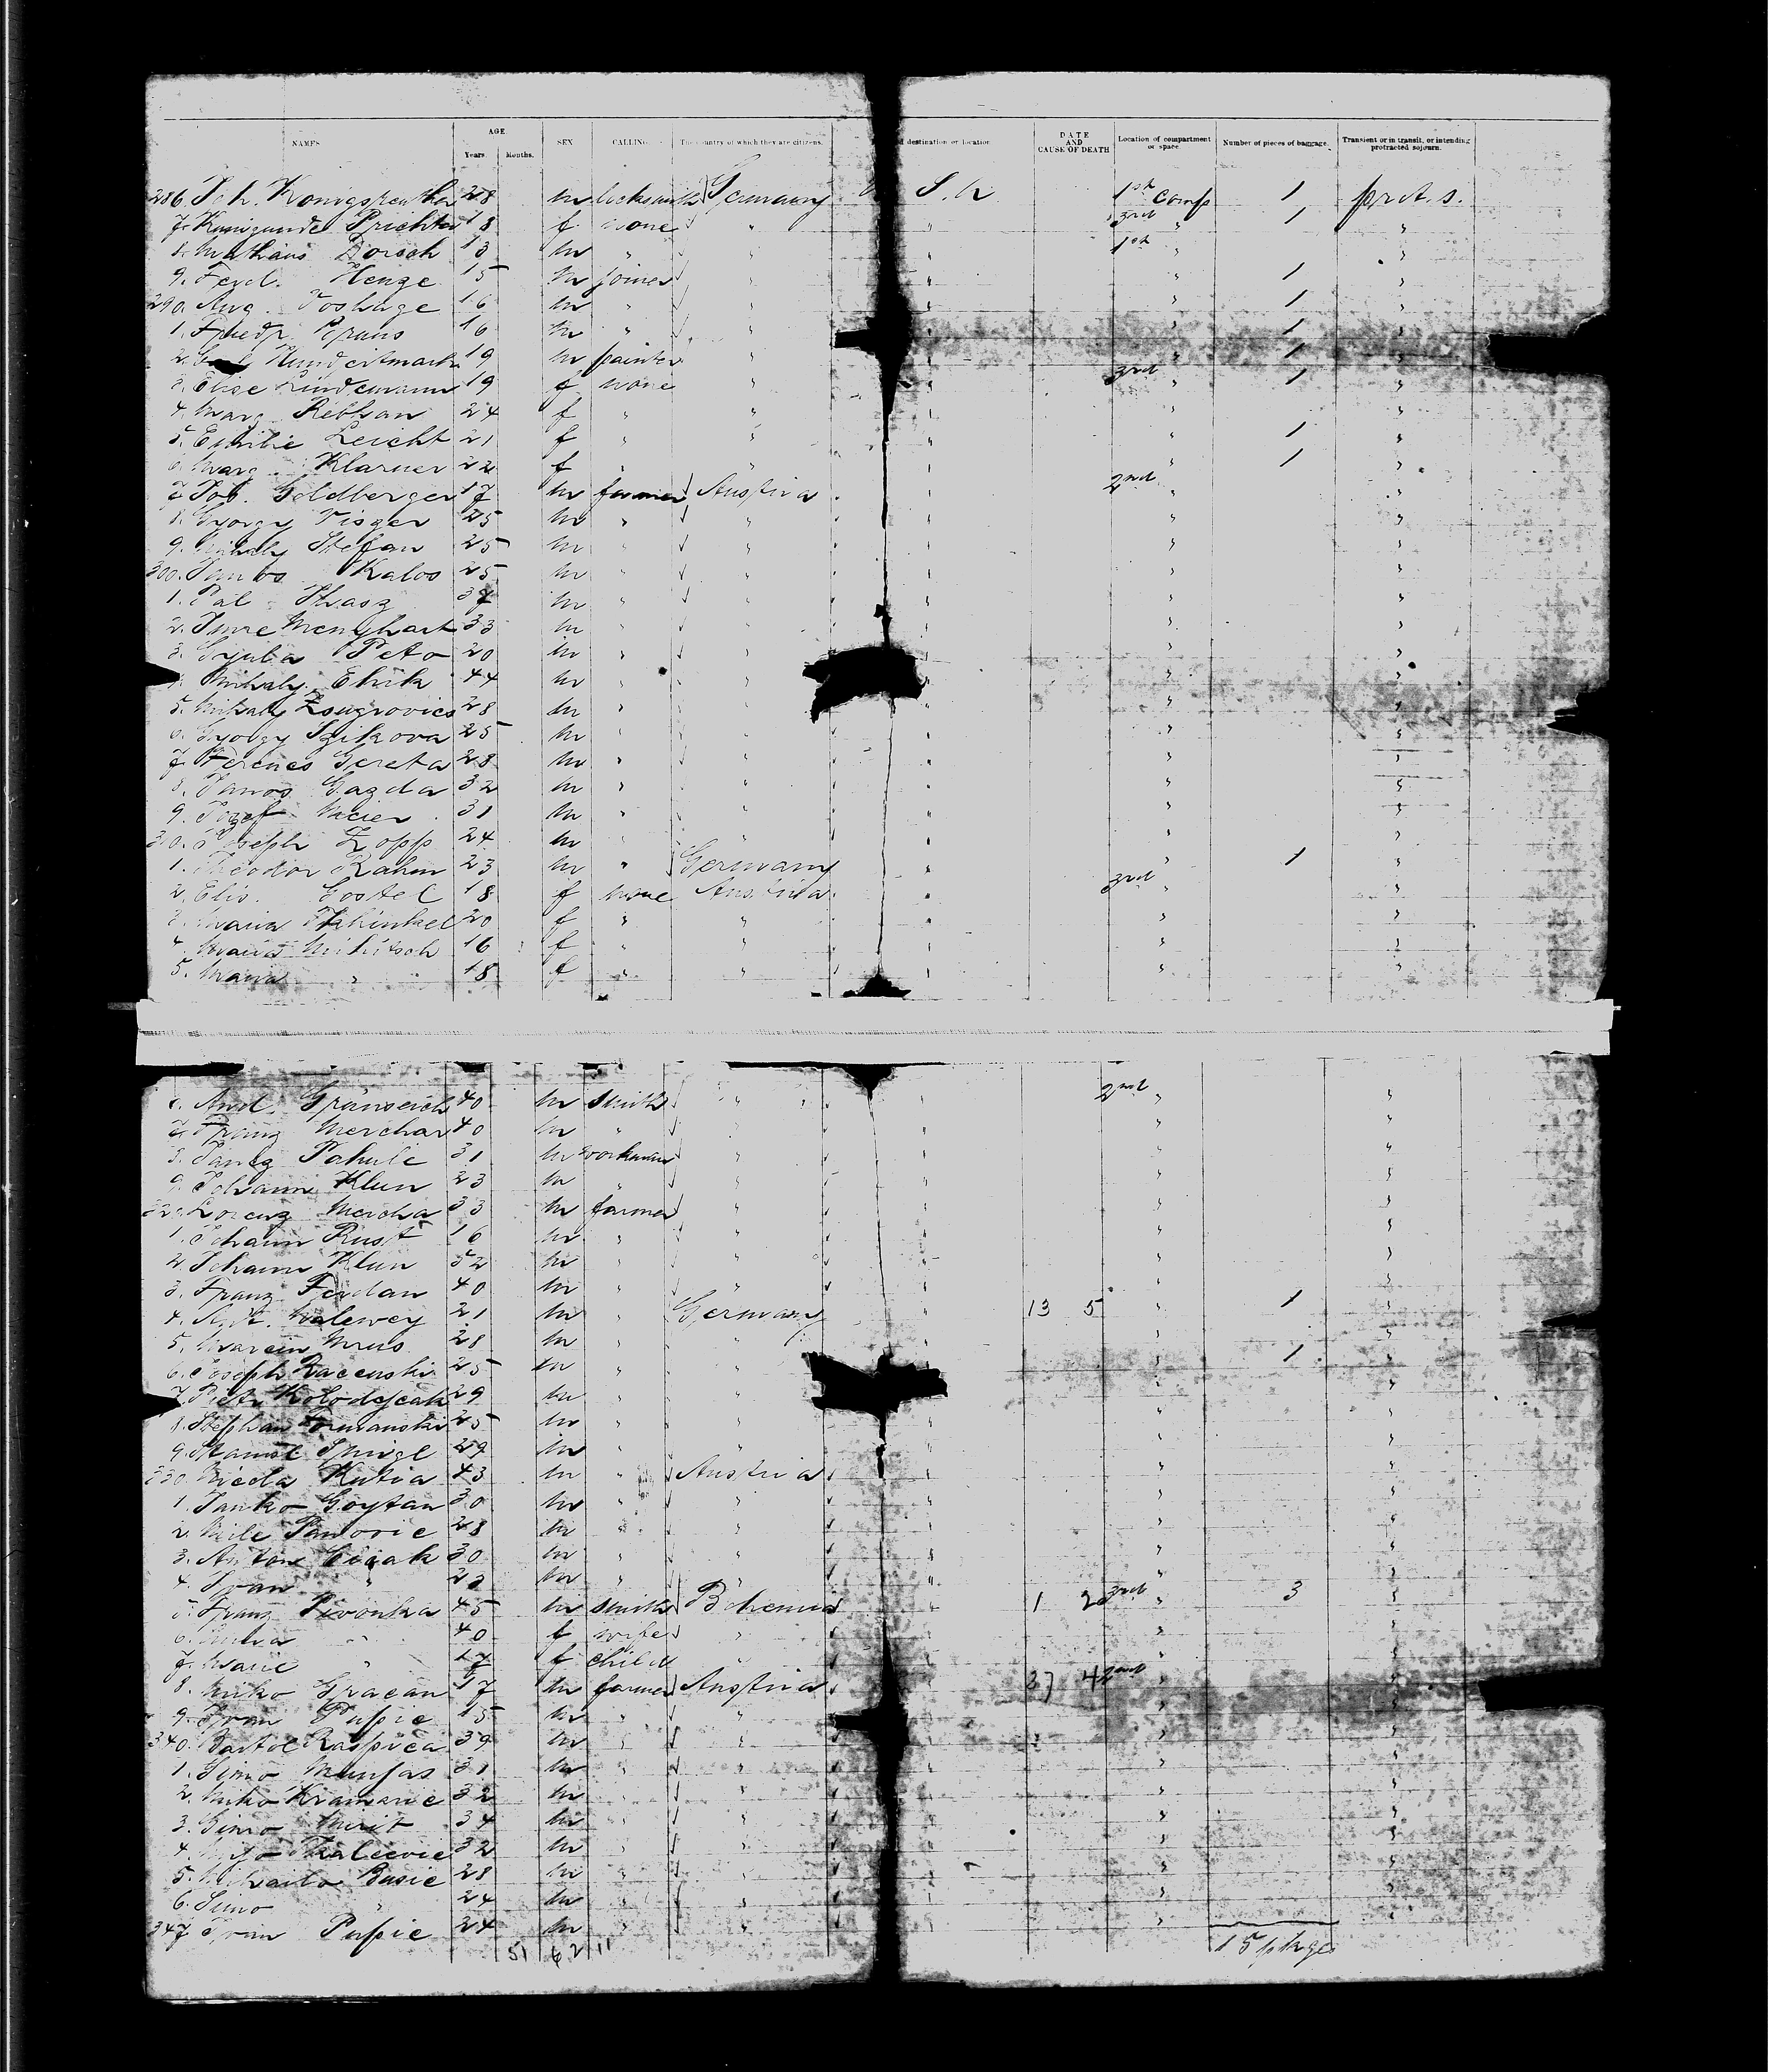 NAMES AGE Years. Months. SEX CALLING The country of which they are citizens. destination or location DATE AND CAUSE OF DEATH Location of compartment or space Number of pieces of baggage. Transient or in transit, or intending protracted sojourn.
286. Joh. 28 m locksmith Germany U. S. A. 1st Comp 1 prot. s.
7. Kunigunde 18 f none " " 3rd " 1 "
8. Mathäus Dorsch 13 m " " " 1st "
9. Ferd. Henge 15 m joiner " " " 1 "
290. Aug. Voshage 16 m " " " " 1 "
1. Friedr. 16 m " " " " 1 "
2. Hundertmark 19 m painter " " " 1 "
3. Elise Lindemann 19 f none " " 3rd " 1 "
4. Marg. Rebhan 24 f " " " " "
5. Emilie Leicht 21 f " " " " 1 "
6. Marg. Klarner 22 f " " " " 1 "
7. Goldberger 17 m farmer Austria " 2nd " "
8. György Visger 25 m " " " " "
9. Mihaly Stefan 25 m " " " " "
300. Janos Kalos 25 m " " " " "
1. Pal m " " " " "
2. Imre Menyhart 33 m " " " " "
3. Gyula Peto 20 m " " " " "
4. Mihaly Elick 44 m " " " " "
5. Mihaly 28 m " " " " "
6. György Szikora 25 m " " " " "
7. Ferencs Gereta 28 m " " " " "
8. Janos Gazda 32 m " " " " "
9. Jozef Meier 31 m " " " " "
310. Joseph Zopp 24 m " " " " "
1. Theodor Rahm 23 m " Germany " " 1 "
2. Elis. Gostel 18 f none Austria " 3rd " "
3. Maria 20 f " " " " "
4. Maria Mihitsch 16 f " " " " "
5. Maria " 18 f " " " " "
And. 40 m smith " " 2nd " "
7. Franz Merchar 40 m " " " " "
8. Janez 31 m workman " " " "
9. Johann Klun 23 m " " " " "
320. Lorenz Mercha 33 m farmer " " " "
1. Johann Rust 16 m " " " " "
2. Johann Klun 52 m " " " " "
3. Franz Ferdan 40 m " " " " "
4. Malewey 21 m " Germany " 13 5 " 1 "
5. Marcin Mrus 28 m " " " " "
6. Joseph Racenski 25 m " " " " 1 "
7. 29 m " " " " "
8. Stephan 25 m " " " " "
9. Stanisl. 29 m " " " " "
330. Nicola Kutia 43 m " Austria " " "
1. Janko Goytan 30 m " " " " "
2. Mile Panovic 28 m " " " " "
3. Anton Cicak 30 m " " " " "
4. Ivan " m " " " " "
5. Franz Pivonka 45 m smith Bohemia " 1 2 3rd " 3 "
6. " 40 f wife " " " "
7. Marie " f child " " " "
8. Miko Gracan 17 m farmer Austria " 27 4 2nd " "
9. Ivan Pupic 15 m " " " " "
340. Bartol Raspica 39 m " " " " "
1. Simo Munjas 31 m " " " " "
2. Miko Kramaric 32 m " " " " "
3. Simo 34 m " " " " "
4. Mijo 32 m " " " " "
5. Mihailo Busic 28 m " " " " "
6. Simo " 24 m " " " " "
347 Ivan Pupic 24 m " " " " "
51 62 11 15 pkges